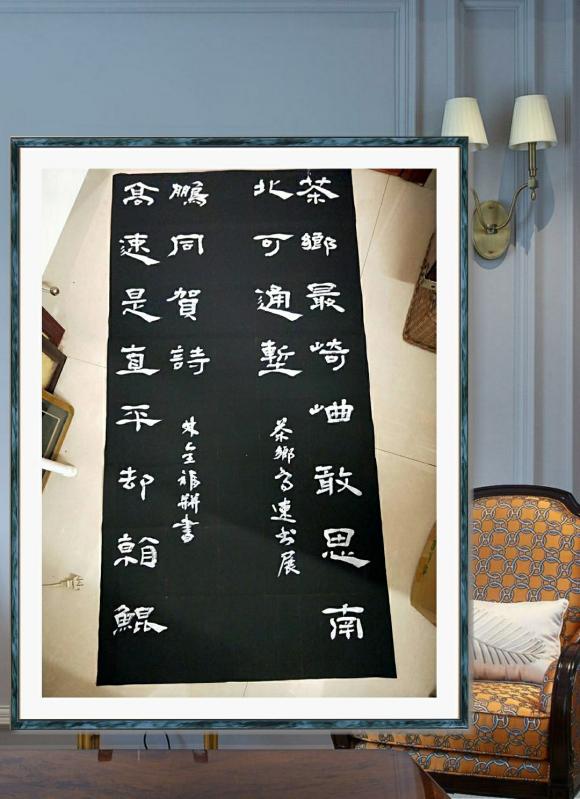 茶鄉最崎岖敢思南
北可通塹
茶鄉高速书展
高速是直平却賴鯤
鵬同賀詩
書